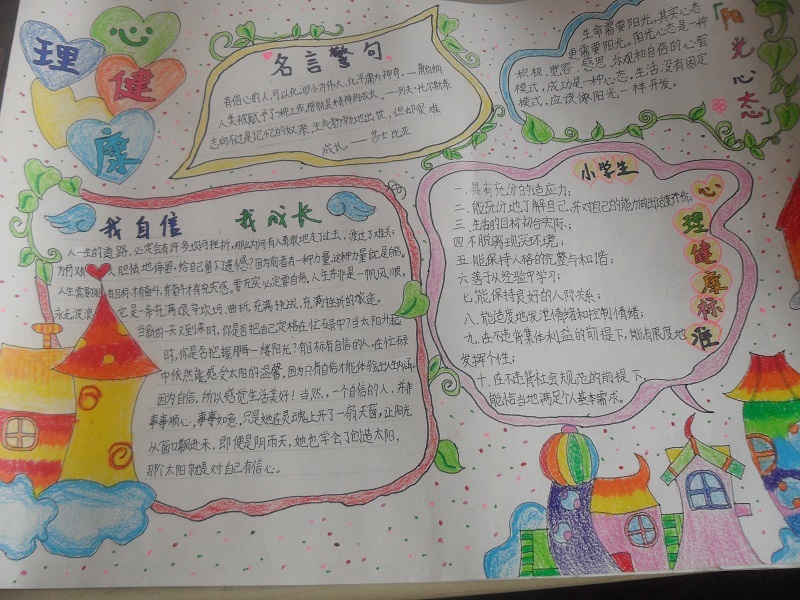 心
理
健
康
名言警句
有信心的人,可以化渺小为伟大,化平庸为神奇。—萧伯纳
人类被赋予了一种工作,那就是精神的成长。—列夫·托尔斯泰
志向不过是记忆的奴隶,生气勃勃地出世,但却很难
成长。——莎士比亚
「阳光心态」
生命需要阳光,其实心态
更需要阳光。阳光心态是一种
积极、宽容、感恩、乐观和自信的心智
模式,成功是一种心态,生活没有固定
模式,应该像阳光一样开发。
我自信 我成长
人一生的道路,必定会有许多坎坷挫折,那么为何有人勇敢地走了过去,渡过了难关;
人胆怯地停留,给自己留下遗憾?因为前者有一种力量,这种力量就是自信。
人生需要
目标不有奋斗,有奋斗才有充实感。要充实必定要自信,人生并非是一帆风顺,
永无波浪
它是一条充满艰辛坎坷、曲折、充满挑战、充满挫折的旅途。
当新的一天又到来时,你是否把自己定格在忙碌中?当太阳升起
时,你是否把握那一缕阳光?有目标有自信的人,在忙碌
中依然能感受太阳的温馨,因为只有自信才能体验出人生内涵。
因为自信,所以感觉生活美好!当然,一个自信的人,并非
事事顺心,事事如意,只是她在灵魂上开了一扇天窗,让阳光
从窗口飘进来,即使是阴雨天,她也学会了创造太阳,
那个太阳就是对自己有信心。
小学生
心理健康标准
一.具有充分的适应力;
二.能充分地了解自己,并对自己的能力做出适度评价;
三.生活的目标切合实际;
四.不脱离现实环境;
五.能保持人格的完整与和谐;
六.善于从经验中学习;
七.能保持良好的人际关系;
八.能适度地发泄情绪和控制情绪;
九.在不违背集体利益的前提下,能有限度地
发挥个性;
十.在不违背社会规范的前提下,
能恰当地满足个人基本需求。